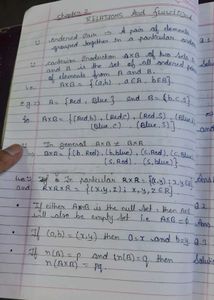 Chapter-2
RELATIONS And functions
ordered Pair is A pair of elements
grouped together in a particular order
Cartesian Production AxB of two sets A
and B is the set of all ordered pair
of elements from A and B.
i.e. AxB = {(a,b) : a∈A, b∈B}
e.g. A = {Red, Blue} and B = {b.c.s}
So AxB = {(Red,b), (Red,c), (Red,s), (Blue,b)
(Blue,c) (Blue,s)}
In general AxB ≠ BxA
BxA = {(b.Red), (b,blue), (c.Red), (c.Blue)
(s.Red), (s,blue)}
In Particular RxR = {(x,y) : x,y∈R}
and RxRxR = {(x,y,z) : x,y,z∈R}
If either A or B is the null set, then AxB
will also be empty set i.e AxB = ϕ
If (a,b) = (x,y) then a=x and b=y
If n(A) = p and n(B) = q then
n(AxB) = pq.